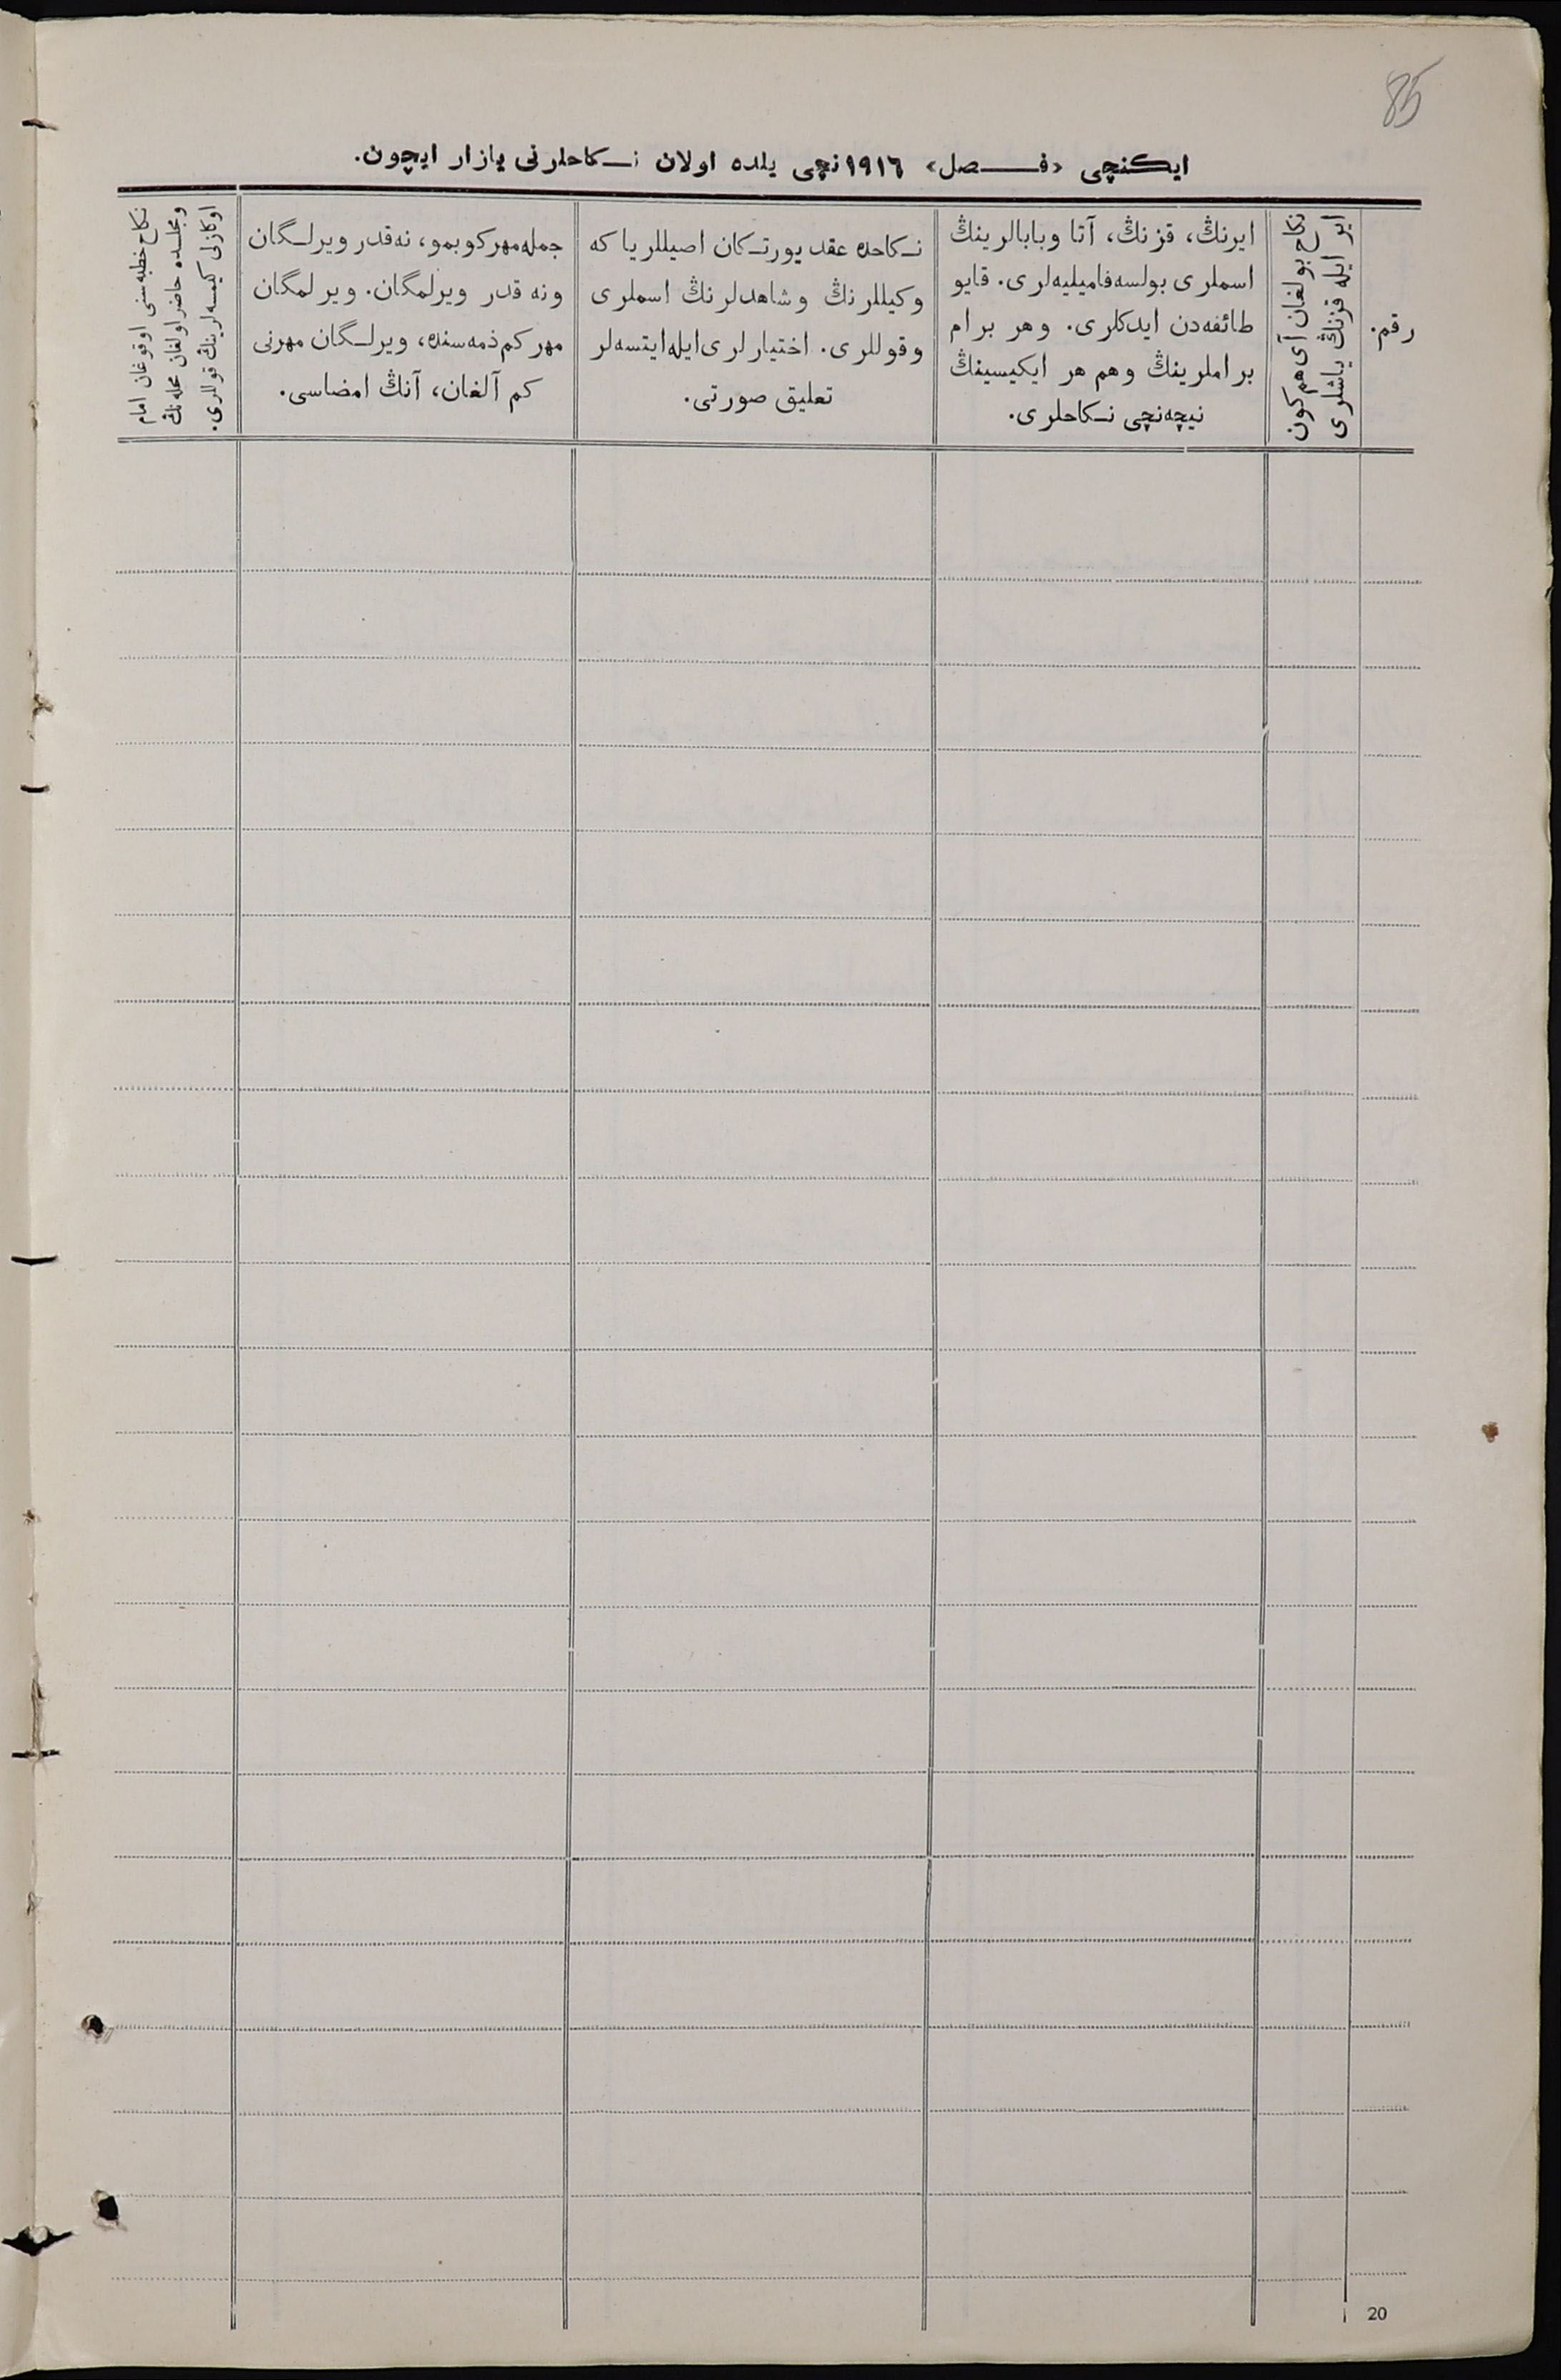 85
ایكنچی «فصل» ١٩١٦نچی یلده اولان نكاحلرنی یازار ایچون.
رقم.
ایر ایله قزنڭ یاشلری
نكاح بولغان آی هم كون
ایرنڭ، قزنڭ، آتا وبابالرینڭ
اسملری بولسه فامیلیه‌لری. قایو
طائفه‌دن ایدكلری. وهر برام
براملرینڭ وهم هر ایكیسینڭ
نیچه‌نچی نكاحلری.
نكاحده عقد یورتكان اصیللریا كه
وكیللرنڭ وشاهدلرنڭ اسملری
وقوللری. اختیارلری ایله ایتسه‌لر
تعلیق صورتی.
جمله مهر كوبمو، نه‌قدر ویرلگان
ونه قدر ویرلمگان. ویرلمگان
مهر كم ذمه‌سنده، ویرلگان مهرنی
كم آلغان، آنڭ امضاسی.
نكاح خطبه‌سنی اوقوغان امام
ومجلسده حاضر اولغان محله‌نڭ
اوكازلی كیمسه‌لرینڭ قوللری.
20